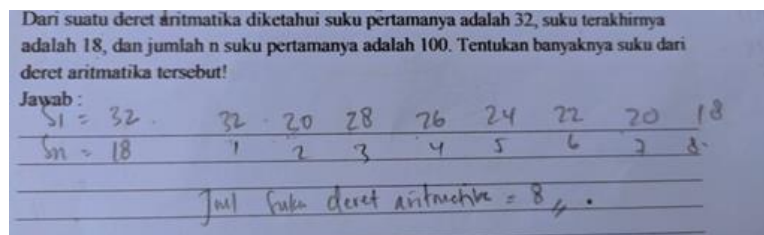 Dari suatu deret aritmatika diketahui suku pertamanya adalah 32, suku terakhirnya
adalah 18, dan jumlah n suku pertamanya adalah 100. Tentukan banyaknya suku dari
deret aritmatika tersebut!
Jawab :
S1 = 32. 32 20 28 26 24 22 20 18
Sn = 18 1 2 3 4 5 6 7 8.
Jml suku deret aritmetika = 8,, .